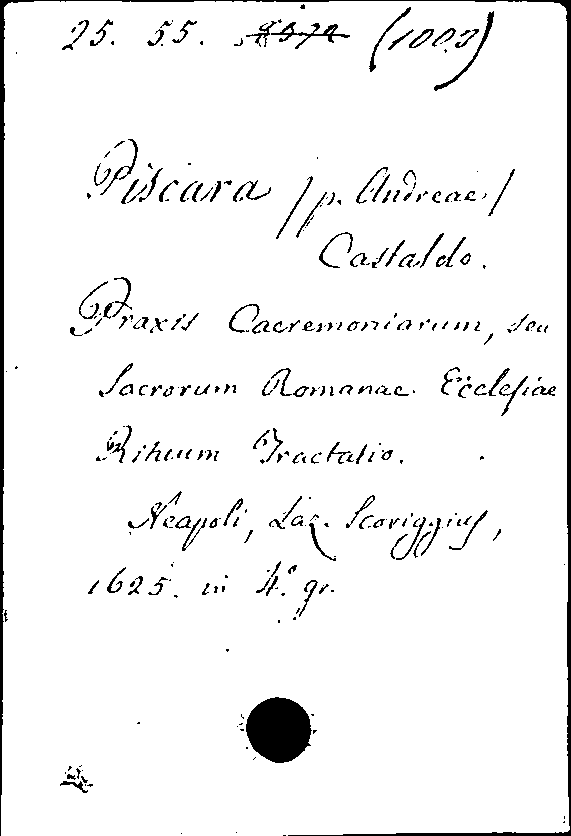 25. 55. (1003)
Piscara /p. Andreae/
Castaldo.
Praxis Caeremoniarum, seu
Sacrorum Romanae Ecclesiae
Rituum Tractatio.
Neapoli, Laz. Scoriggius,
1625. in 4.° gr.